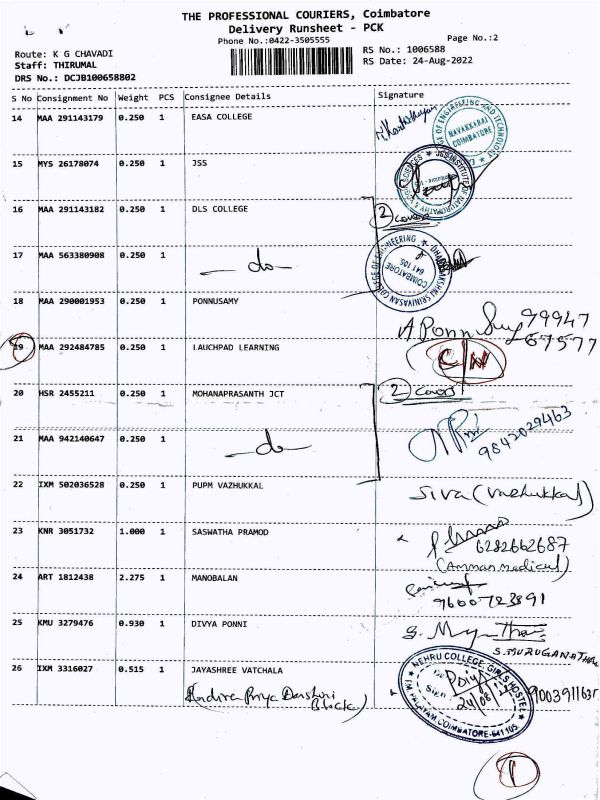 THE PROFESSIONAL COURIERS, Coimbatore
Delivery Runsheet - PCK
Phone No.:0422-3505555
Page No.:2
Route: K G CHAVADI
RS No.: 1006588
Staff: THIRUMAL
RS Date: 24-Aug-2022
DRS No.: DCJB100658802
S No Consignment No Weight PCS Consignee Details Signature
14 MAA 291143179 0.250 1 EASA COLLEGE
OF ENGINEERING AND TECHNOLOGY
NAVAKKARAI
COIMBATORE
15 MYS 26178074 0.250 1 JSS
JSS INSTITUTE OF NATUROPATHY & SCIENCES
16 MAA 291143182 0.250 1 DLS COLLEGE 2 covers
17 MAA 563380908 0.250 1 — do —
DHANALAKSHMI SRINIVASAN COLLEGE OF ENGINEERING
COIMBATORE
641 105
18 MAA 290001953 0.250 1 PONNUSAMY A Ponn Samy 99947
67577
19 MAA 292484785 0.250 1 LAUCHPAD LEARNING C/N
20 HSR 2455211 0.250 1 MOHANAPRASANTH JCT 2 Covers
9842029463
21 MAA 942140647 0.250 1 — do —
22 IXM 502036528 0.250 1 PUPM VAZHUKKAL Siva (Vazhukkal)
23 KNR 3051732 1.000 1 SASWATHA PRAMOD
6282662687
(Amman medical)
24 ART 1812438 2.275 1 MANOBALAN
9600723891
25 KMU 3279476 0.930 1 DIVYA PONNI
S. MURUGANATHAN
26 IXM 3316027 0.515 1 JAYASHREE VATCHALA
(Indira Priya Darshini
Block)
NEHRU COLLEGE GIRLS HOSTEL
T.M. PALAYAM COIMBATORE-641105
Sign
24/08/22
9003911635
1